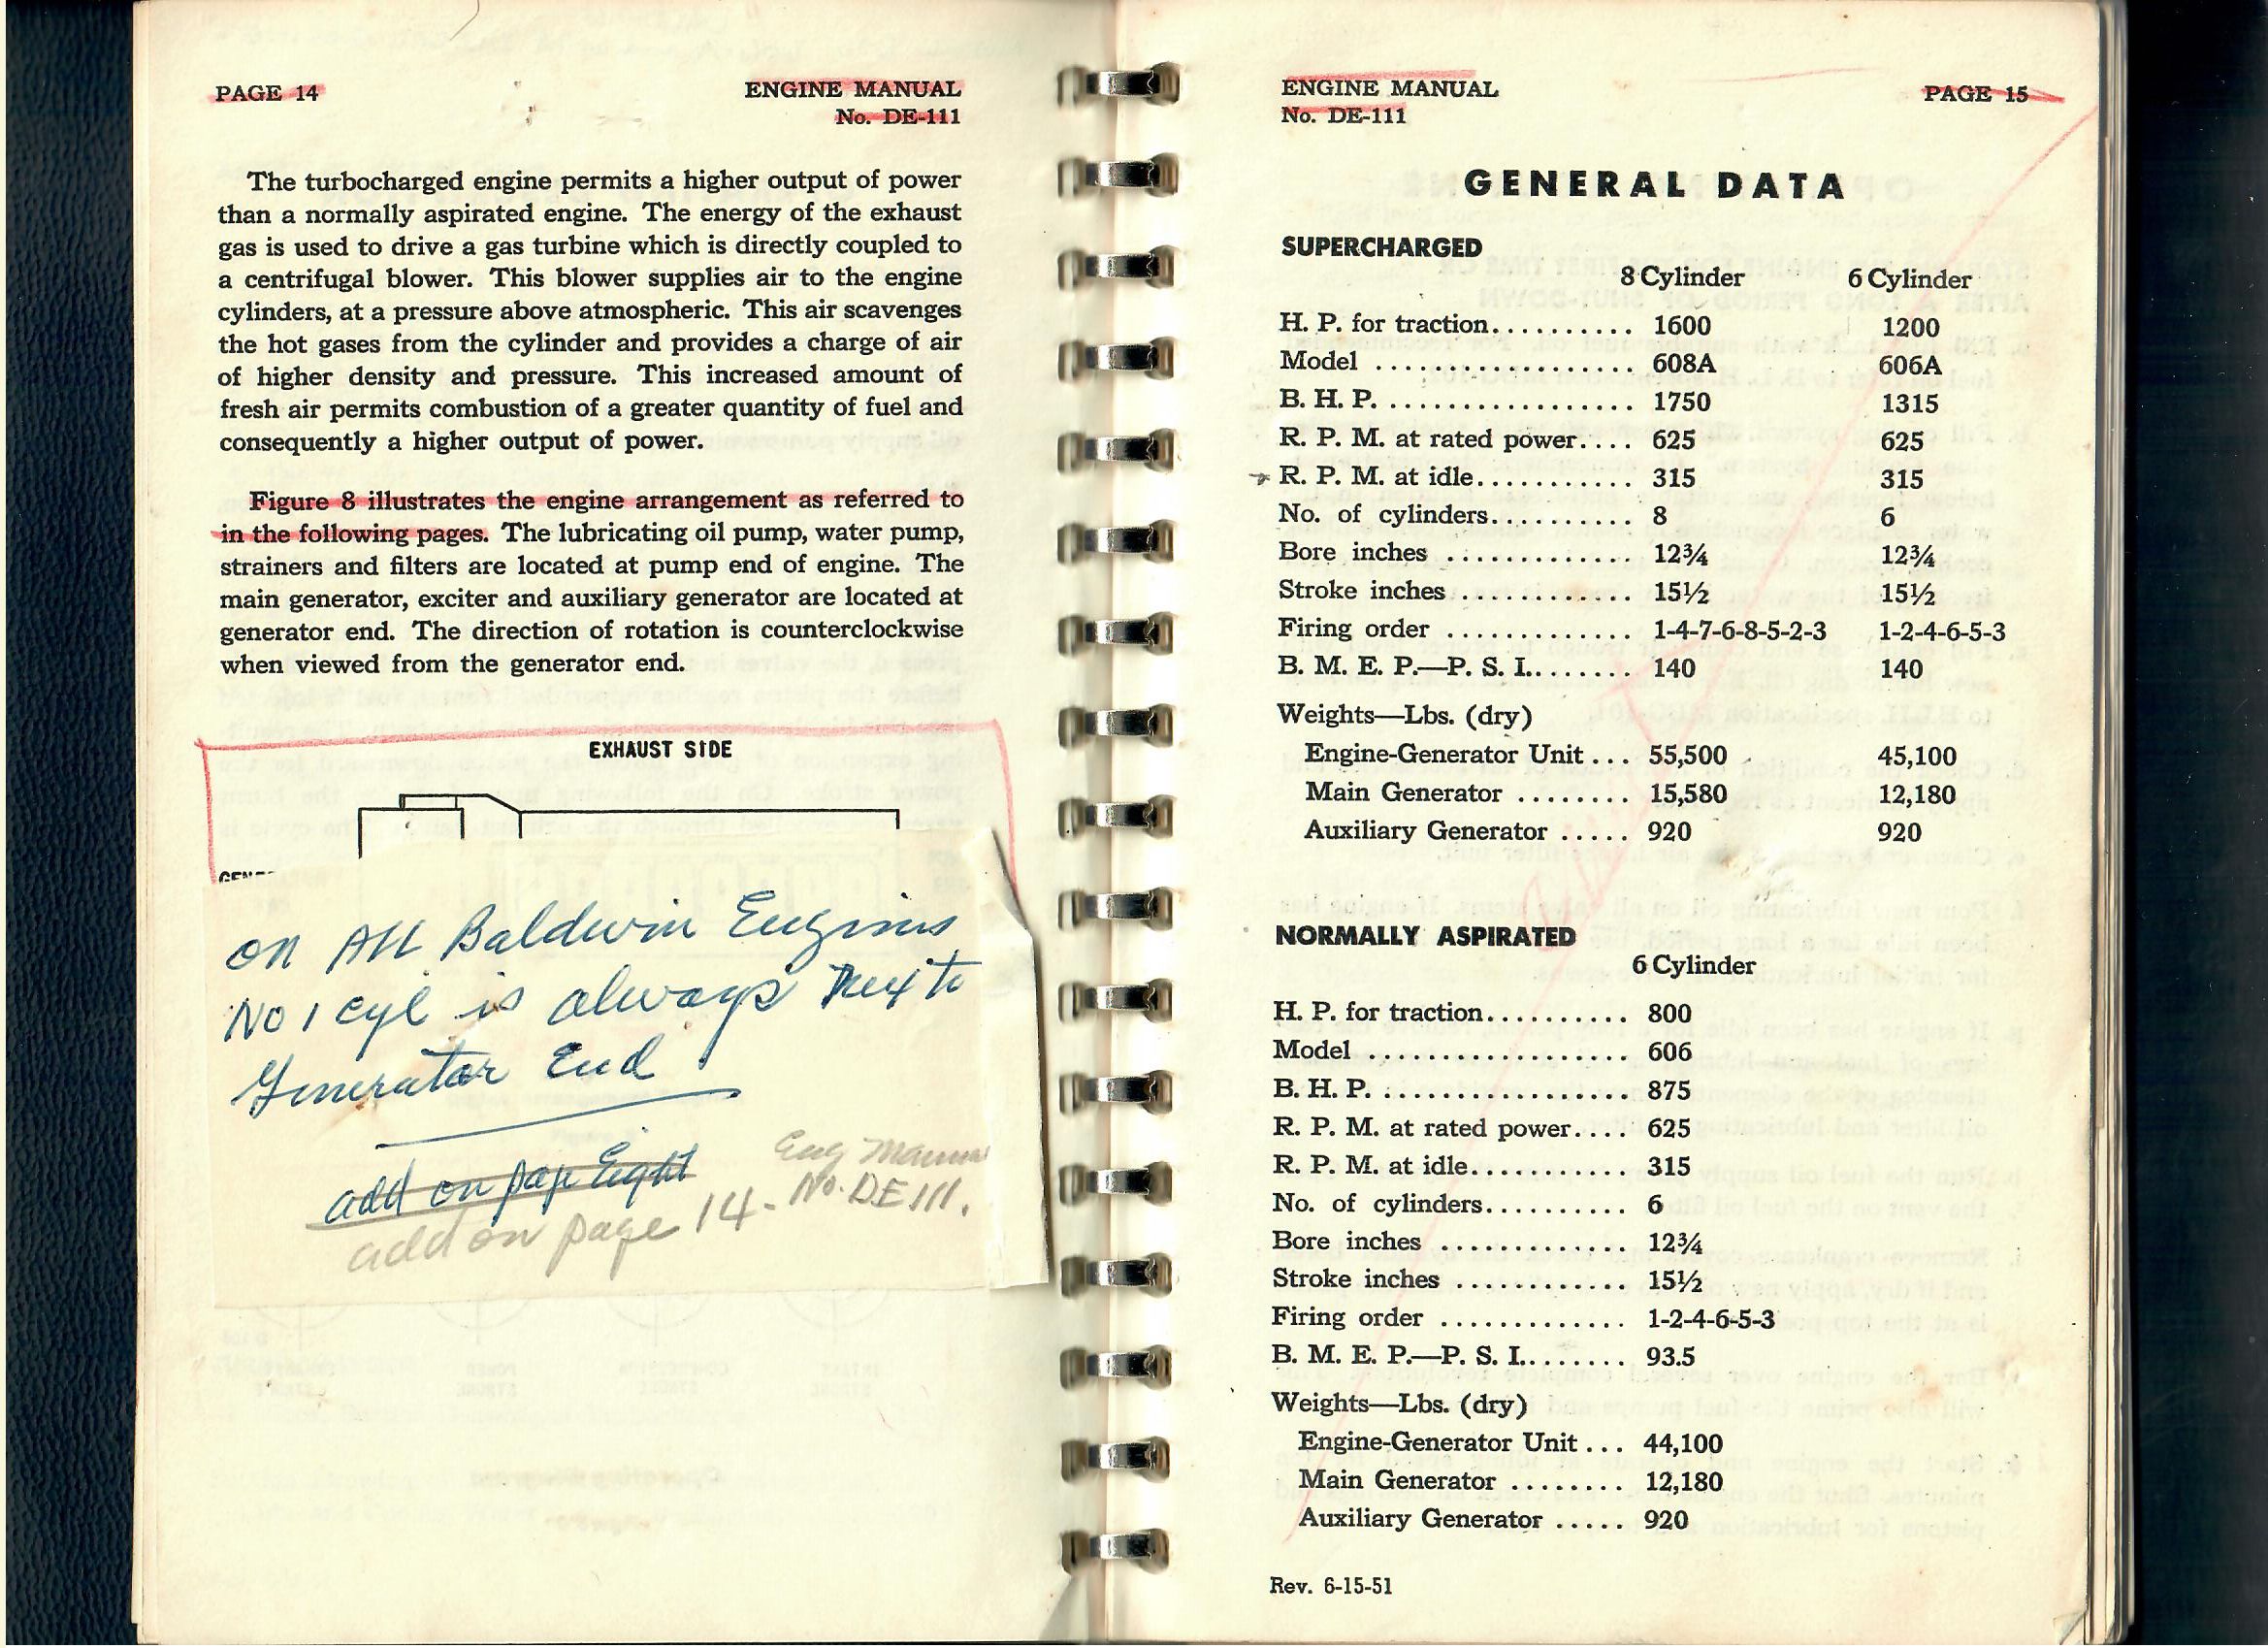 PAGE 14
ENGINE MANUAL
No. DE-111
The turbocharged engine permits a higher output of power
than a normally aspirated engine. The energy of the exhaust
gas is used to drive a gas turbine which is directly coupled to
a centrifugal blower. This blower supplies air to the engine
cylinders, at a pressure above atmospheric. This air scavenges
the hot gases from the cylinder and provides a charge of air
of higher density and pressure. This increased amount of
fresh air permits combustion of a greater quantity of fuel and
consequently a higher output of power.
Figure 8 illustrates the engine arrangement as referred to
in the following pages. The lubricating oil pump, water pump,
strainers and filters are located at pump end of engine. The
main generator, exciter and auxiliary generator are located at
generator end. The direction of rotation is counterclockwise
when viewed from the generator end.
EXHAUST SIDE
on All Baldwin Engines
No 1 cyl is always Next to
Generator End
add on page Eight
Eng Manual
add on page 14- No. DE111.
ENGINE MANUAL
No. DE-111
PAGE 15
GENERAL DATA
SUPERCHARGED
8 Cylinder 6 Cylinder
H. P. for traction.......... 1600 1200
Model .................. 608A 606A
B. H. P. .................. 1750 1315
R. P. M. at rated power.... 625 625
R. P. M. at idle........... 315 315
No. of cylinders.......... 8 6
Bore inches ............. 12¾ 12¾
Stroke inches ............ 15½ 15½
Firing order ............. 1-4-7-6-8-5-2-3 1-2-4-6-5-3
B. M. E. P.—P. S. I........ 140 140
Weights—Lbs. (dry)
Engine-Generator Unit ... 55,500 45,100
Main Generator ........ 15,580 12,180
Auxiliary Generator ..... 920 920
NORMALLY ASPIRATED
6 Cylinder
H. P. for traction.......... 800
Model .................. 606
B. H. P. .................. 875
R. P. M. at rated power.... 625
R. P. M. at idle........... 315
No. of cylinders.......... 6
Bore inches ............. 12¾
Stroke inches ............ 15½
Firing order ............. 1-2-4-6-5-3
B. M. E. P.—P. S. I........ 93.5
Weights—Lbs. (dry)
Engine-Generator Unit ... 44,100
Main Generator ........ 12,180
Auxiliary Generator ..... 920
Rev. 6-15-51